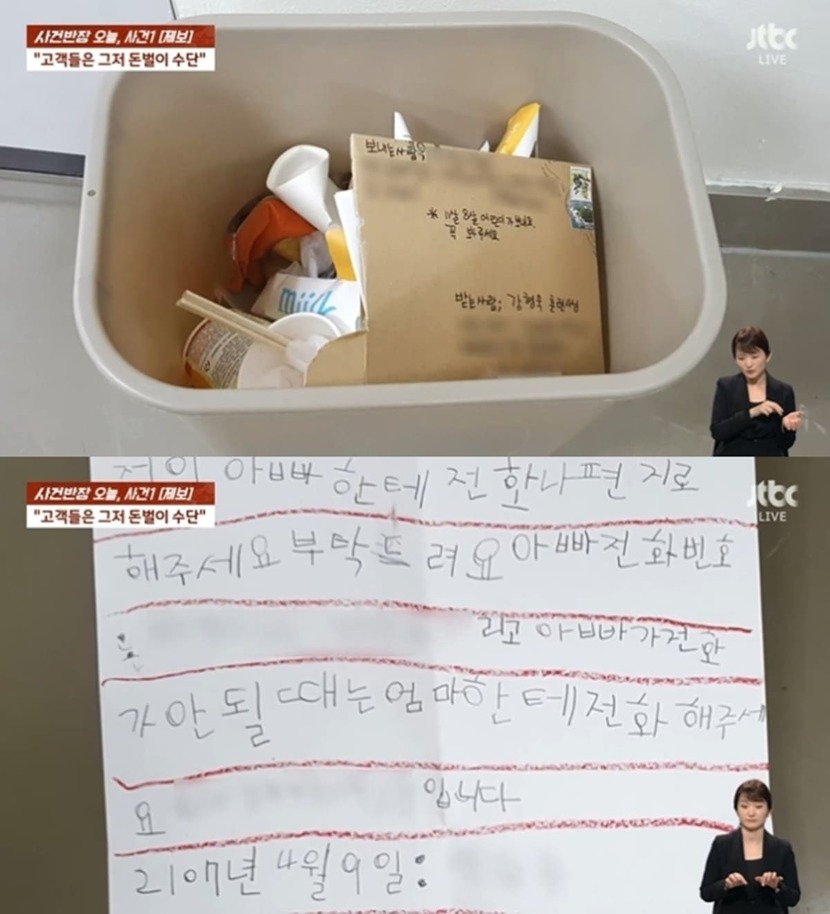 사건반장 오늘, 사건1 [제보]
"고객들은 그저 돈벌이 수단"
jtbc
LIVE
보내는사람
* 11살 8살 어린이가 보내요.
꼭 봐주세요
miilk
받는사람; 강형욱 훈련사님
사건반장 오늘, 사건1 [제보]
"고객들은 그저 돈벌이 수단"
jtbc
LIVE
저의 아빠한테 전화나편지로
해주세요 부탁드려요 아빠전화번호
는 리고 아빠가전화
가안될 때는엄마한테전화해주세
요 입니다
2107년 4월 9일: